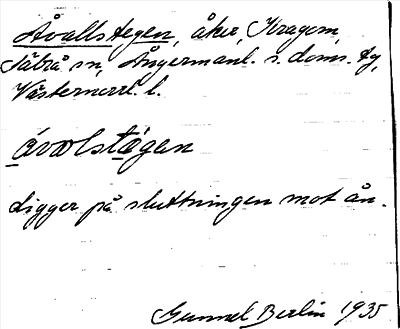 Åvallstegen, åker, Kragom,
Säbrå sn, Ångermanl. s. doms. tg,
Västernorrl. l.
åvalstägen
Ligger på sluttningen mot ån.
Gunnel Berlin 1935